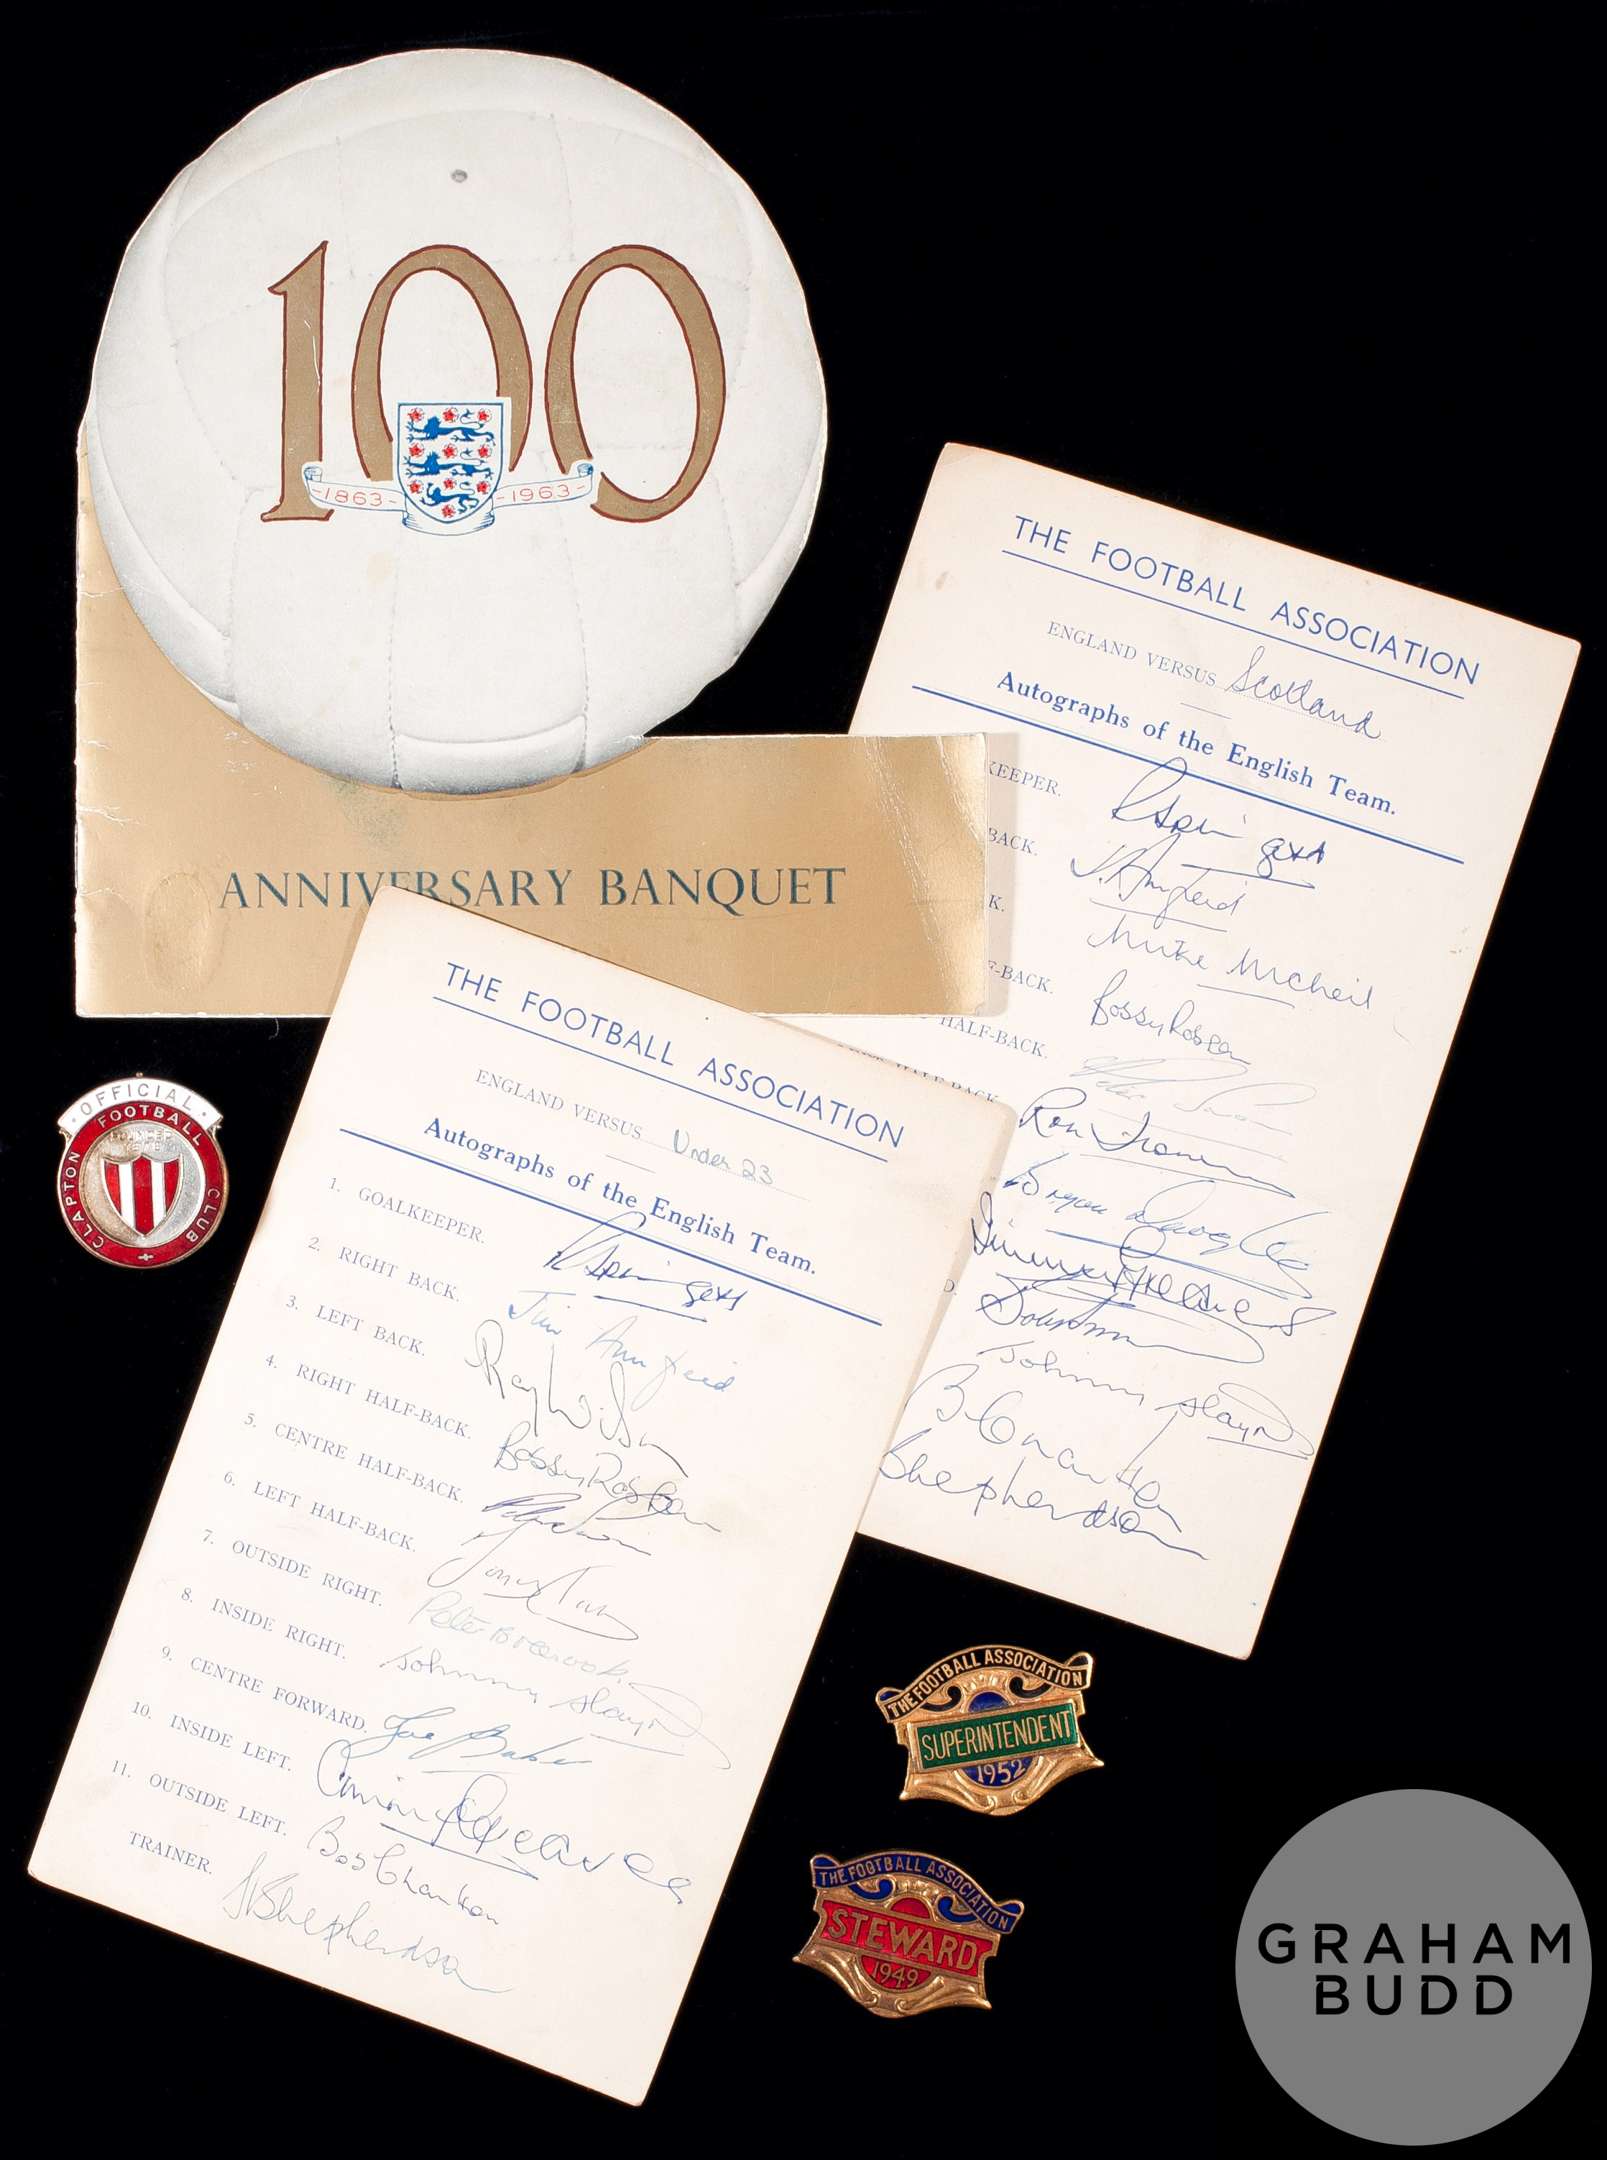 100
-1863-
-1963-
ANNIVERSARY BANQUET
THE FOOTBALL ASSOCIATION
ENGLAND VERSUS Scotland
Autographs of the English Team.
KEEPER.
BACK.
K.
F-BACK.
HALF-BACK.
BACK
D.
R Springett
J. Armfield
Mike McNeil
Bobby Robson
Peter Swan
Ron Flowers
Bryan Douglas
Jimmy Greaves
Johnny Haynes
B. Charlton
Shepherdson
THE FOOTBALL ASSOCIATION
ENGLAND VERSUS Under 23
Autographs of the English Team.
1. GOALKEEPER. R Springett
2. RIGHT BACK. Jim Armfield
3. LEFT BACK. Ray Wilson
4. RIGHT HALF-BACK. Bobby Robson
5. CENTRE HALF-BACK.
6. LEFT HALF-BACK.
7. OUTSIDE RIGHT. Peter Brabrook
8. INSIDE RIGHT. Johnny Haynes
9. CENTRE FORWARD. Joe Baker
10. INSIDE LEFT. Jimmy Greaves
11. OUTSIDE LEFT. Bob Charlton
TRAINER. H Shepherdson
·OFFICIAL·
CLAPTON FOOTBALL CLUB
THE FOOTBALL ASSOCIATION
SUPERINTENDENT
1952
THE FOOTBALL ASSOCIATION
STEWARD
1949
GRAHAM
BUDD